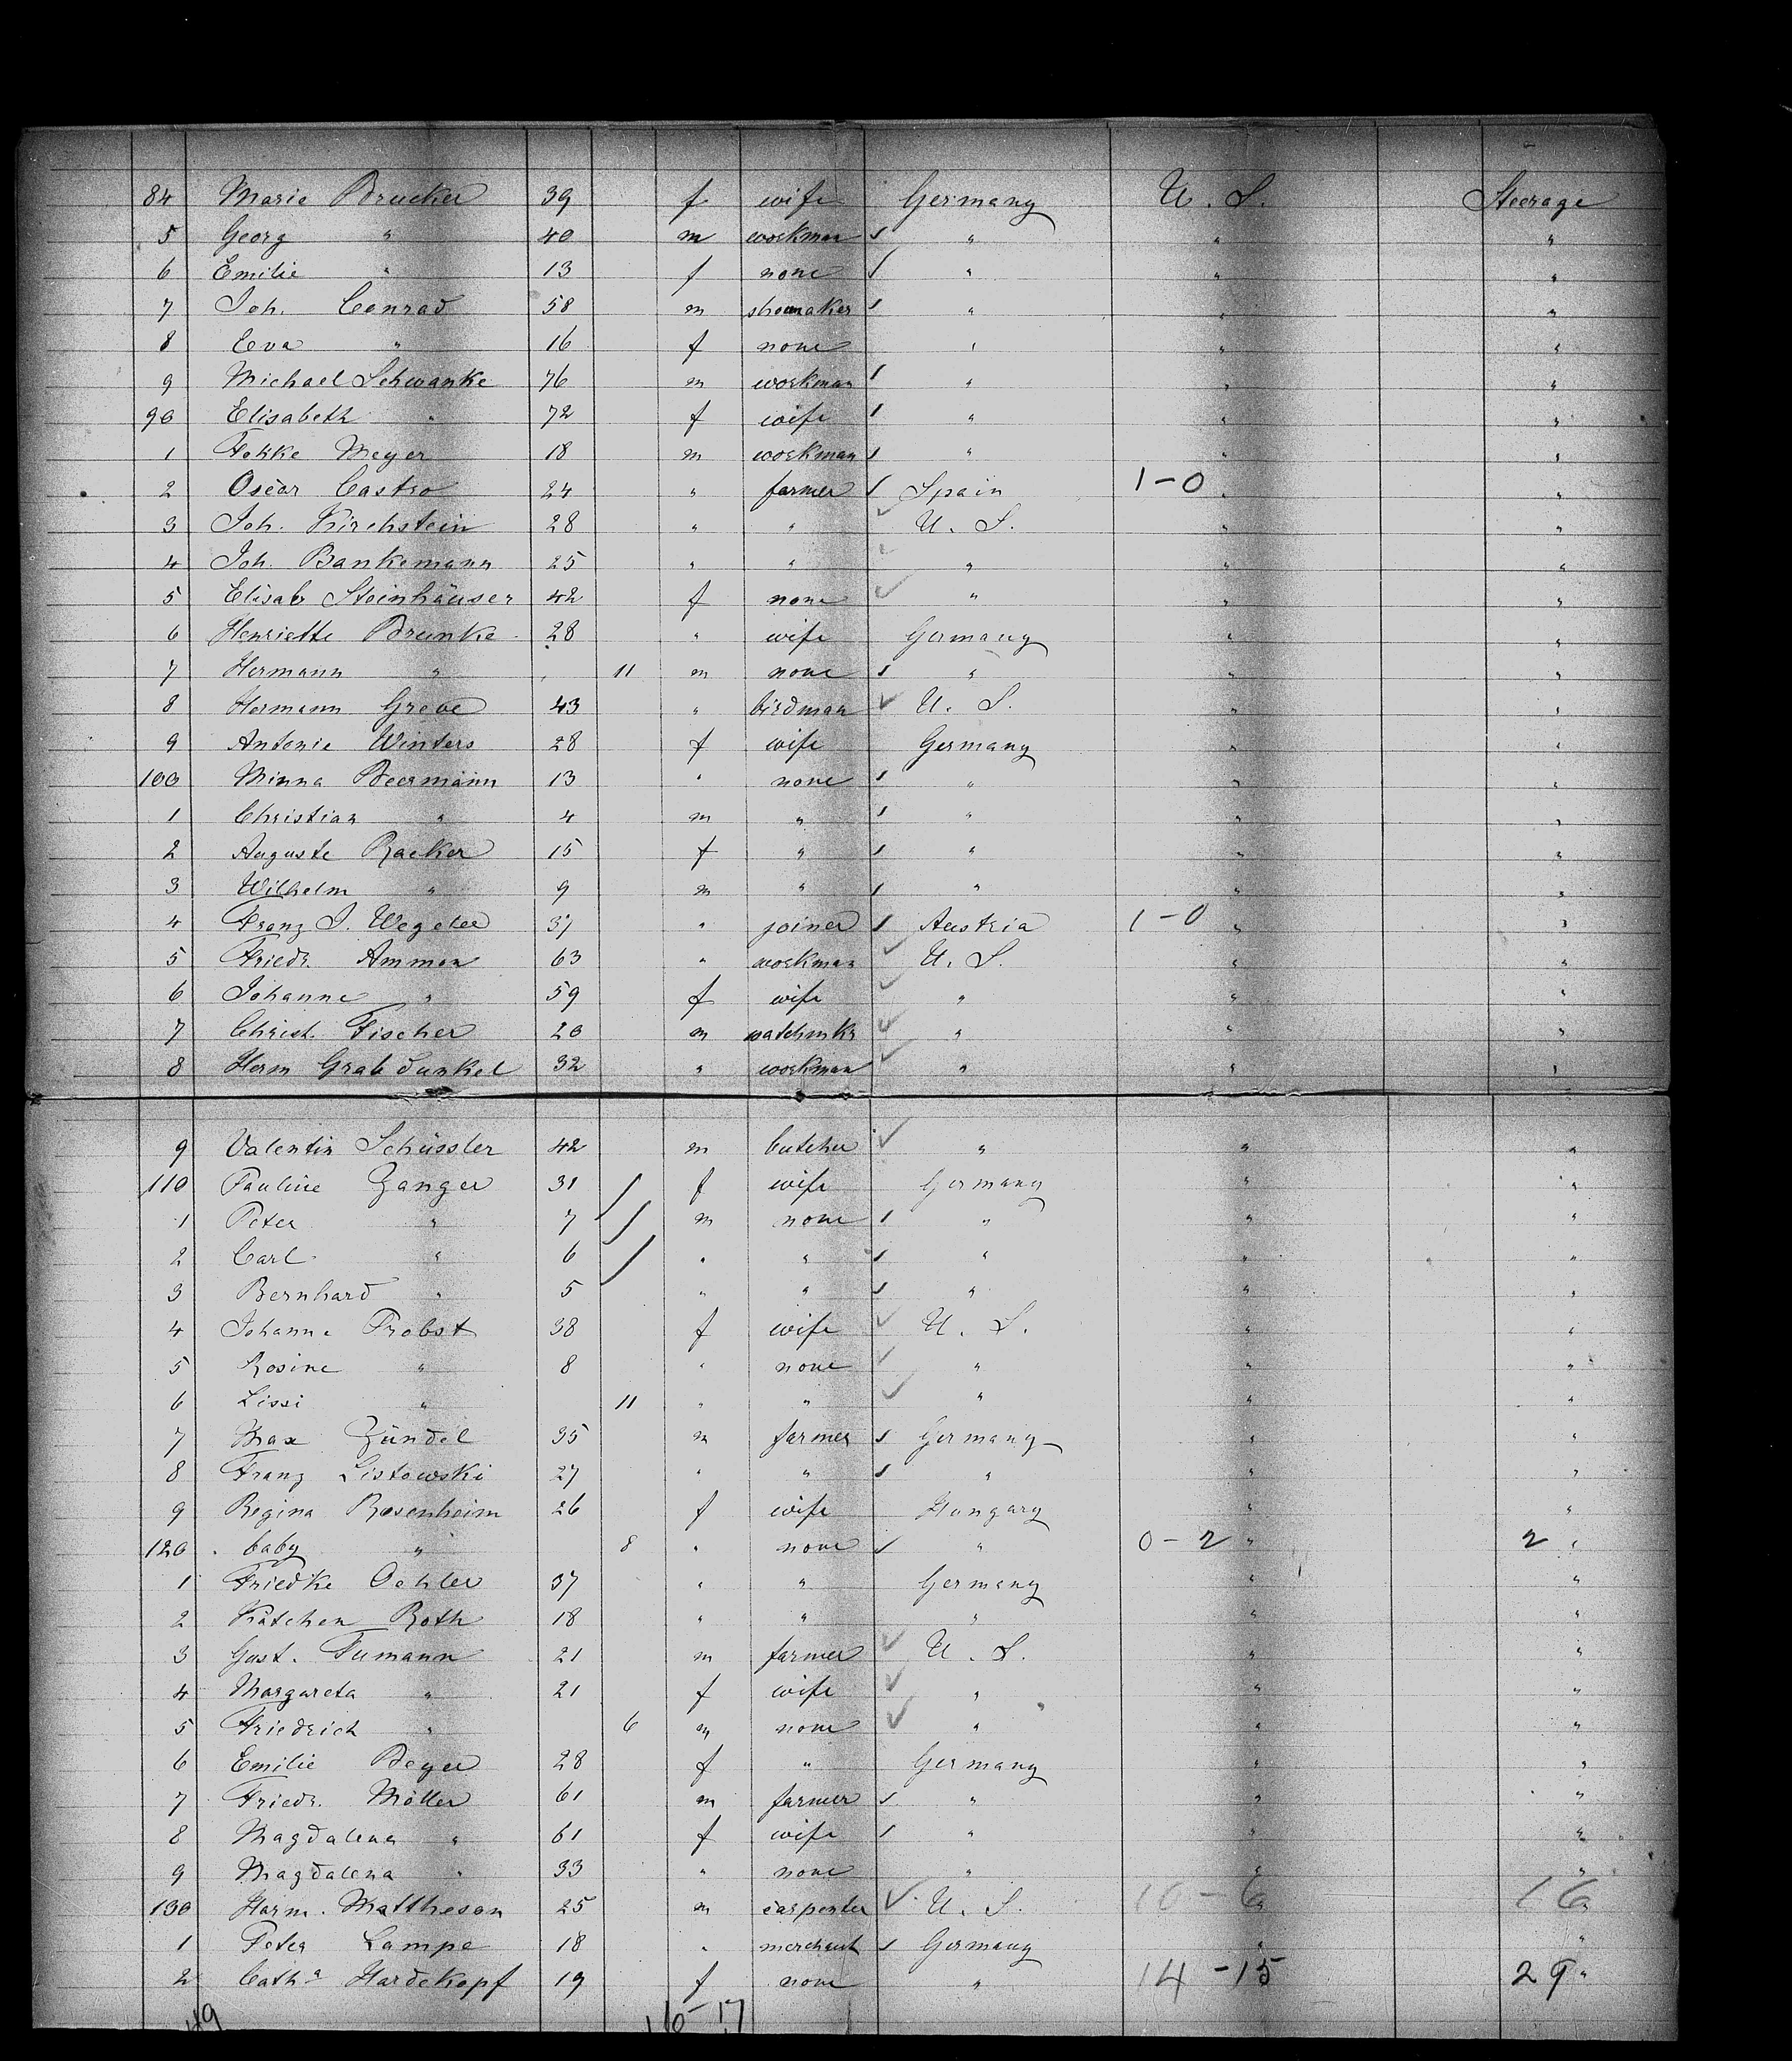 84 Marie Brucker 39 f wife Germany U. S. Steerage
5 Georg " 40 m workman " " "
6 Emilie " 13 f none " " "
7 Joh. Conrad 58 m shoemaker " " "
8 Eva " 16 f none " " "
9 Michael Schwanke 76 m workman " " "
90 Elisabeth " 72 f wife " " "
1 Fokke Meyer 18 m workman " " "
2 Oscar Castro 24 " farmer Spain 1-0 " "
3 Joh. Kirchstein 28 " " U. S. " "
4 Joh. Bankemann 25 " " " " "
5 Elisab Steinhäuser 42 f none " " "
6 Henriette Brunke 28 " wife Germany " "
7 Hermann " 11 m none " " "
8 Hermann Greve 43 " birdman U. S. " "
9 Antonie Winters 28 f wife Germany " "
100 Minna Beermann 13 " none " " "
1 Christian " 4 m " " " "
2 Auguste Racker 15 f " " " "
3 Wilhelm " 9 m " " " "
4 Franz J. 37 " joiner Austria 1-0 " "
5 Friedr. Ammon 63 " workman U. S. " "
6 Johanne " 59 f wife " " "
7 Christ. Fischer 20 m watchmkr " " "
8 Herm Grabdunkel 32 " workman " " "
9 Valentin Schüssler 42 m butcher " " "
110 Pauline Zanger 31 f wife Germany " "
1 Peter " 7 m none " " "
2 Carl " 6 " " " " "
3 Bernhard " 5 " " " " "
4 Johanne Probst 38 f wife U. S. " "
5 Rosine " 8 " none " " "
6 Lissi " 11 " " " " "
7 Max Zündel 35 m farmer Germany " "
8 Franz Listowski 27 " " " " "
9 Regina Rosenheim 26 f wife Hungary " "
120 baby " 8 " none " 0-2 " 2 "
1 Friedke Oehler 37 " " Germany " "
2 Kätchen Roth 18 " " " " "
3 Gust. Tumann 21 m farmer U. S. " "
4 Margareta " 21 f wife " " "
5 Friedrich " 6 m none " " "
6 Emilie Beyer 28 f " Germany " "
7 Friedr. Möller 61 m farmer " " "
8 Magdalena " 61 f wife " " "
9 Magdalena " 33 " none " " "
130 Harm. Mattheson 25 m carpenter U. S. 10-6 " 16 "
1 Peter Lampe 18 " merchant Germany " "
2 Cath.a Hardekopf 19 f none " 14-15 29 "
49 16-17